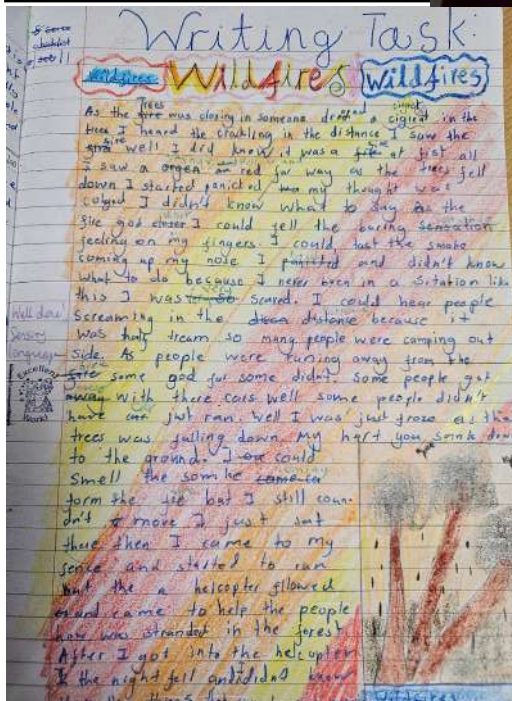 Writing Task:
Wildfires Wildfires Wildfires
Trees cigret
As the fire was closing in someone droped a cigret in the
trees I heard the crackling in the distance I saw the
fire well I did know it was a fire at fist all
I saw a orgen red far way as the trees fell
down I started panicted my thought was
I didn't know what to say. As the
fire god closer I could fell the buring sensation
feeling on my fingers. I could tast the smoke
coming up my nose I panicted and didn't know
what to do because I never been in a sitation like
this I was so scared. I could hear people
Screaming in the distance because it
was half tream so many people were camping out
side. As people were runing away from the
fire some god far some didnt. Some people got
away with there cars well some people didn't
have just ran. Well I was just froze as the
trees was falling down. My hart you sank down
to the ground. I could
Smell the somke coming
form the fie but I still coun-
dn't move I just sat
there then I came to my
sence and started to ran
but the a helcopter fllowed
and came to help the people
how was strandet in the forest
After I got into the helcopter
the night fell and I didnt know
Well done!
Sensory
language
Excellent
Work
checklist